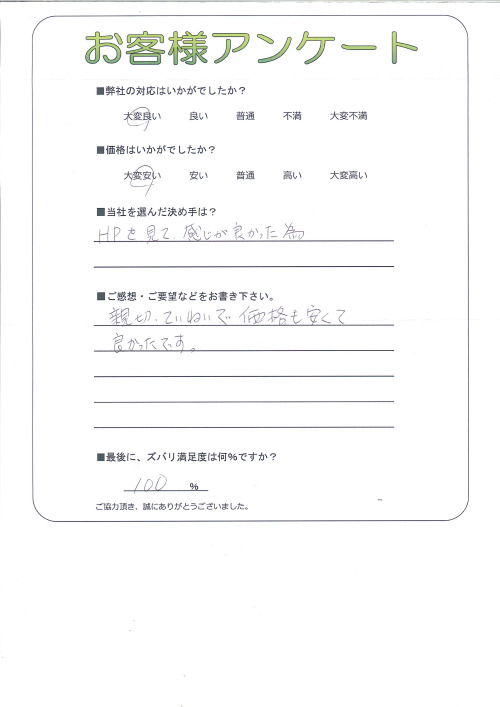 お客様アンケート
■弊社の対応はいかがでしたか？
大変良い 良い 普通 不満 大変不満
■価格はいかがでしたか？
大変安い 安い 普通 高い 大変高い
■当社を選んだ決め手は？
HPを見て、感じが良かった為
■ご感想・ご要望などをお書き下さい。
親切、ていねいで価格も安くて
良かったです。
■最後に、ズバリ満足度は何％ですか？
100 ％
ご協力頂き、誠にありがとうございました。